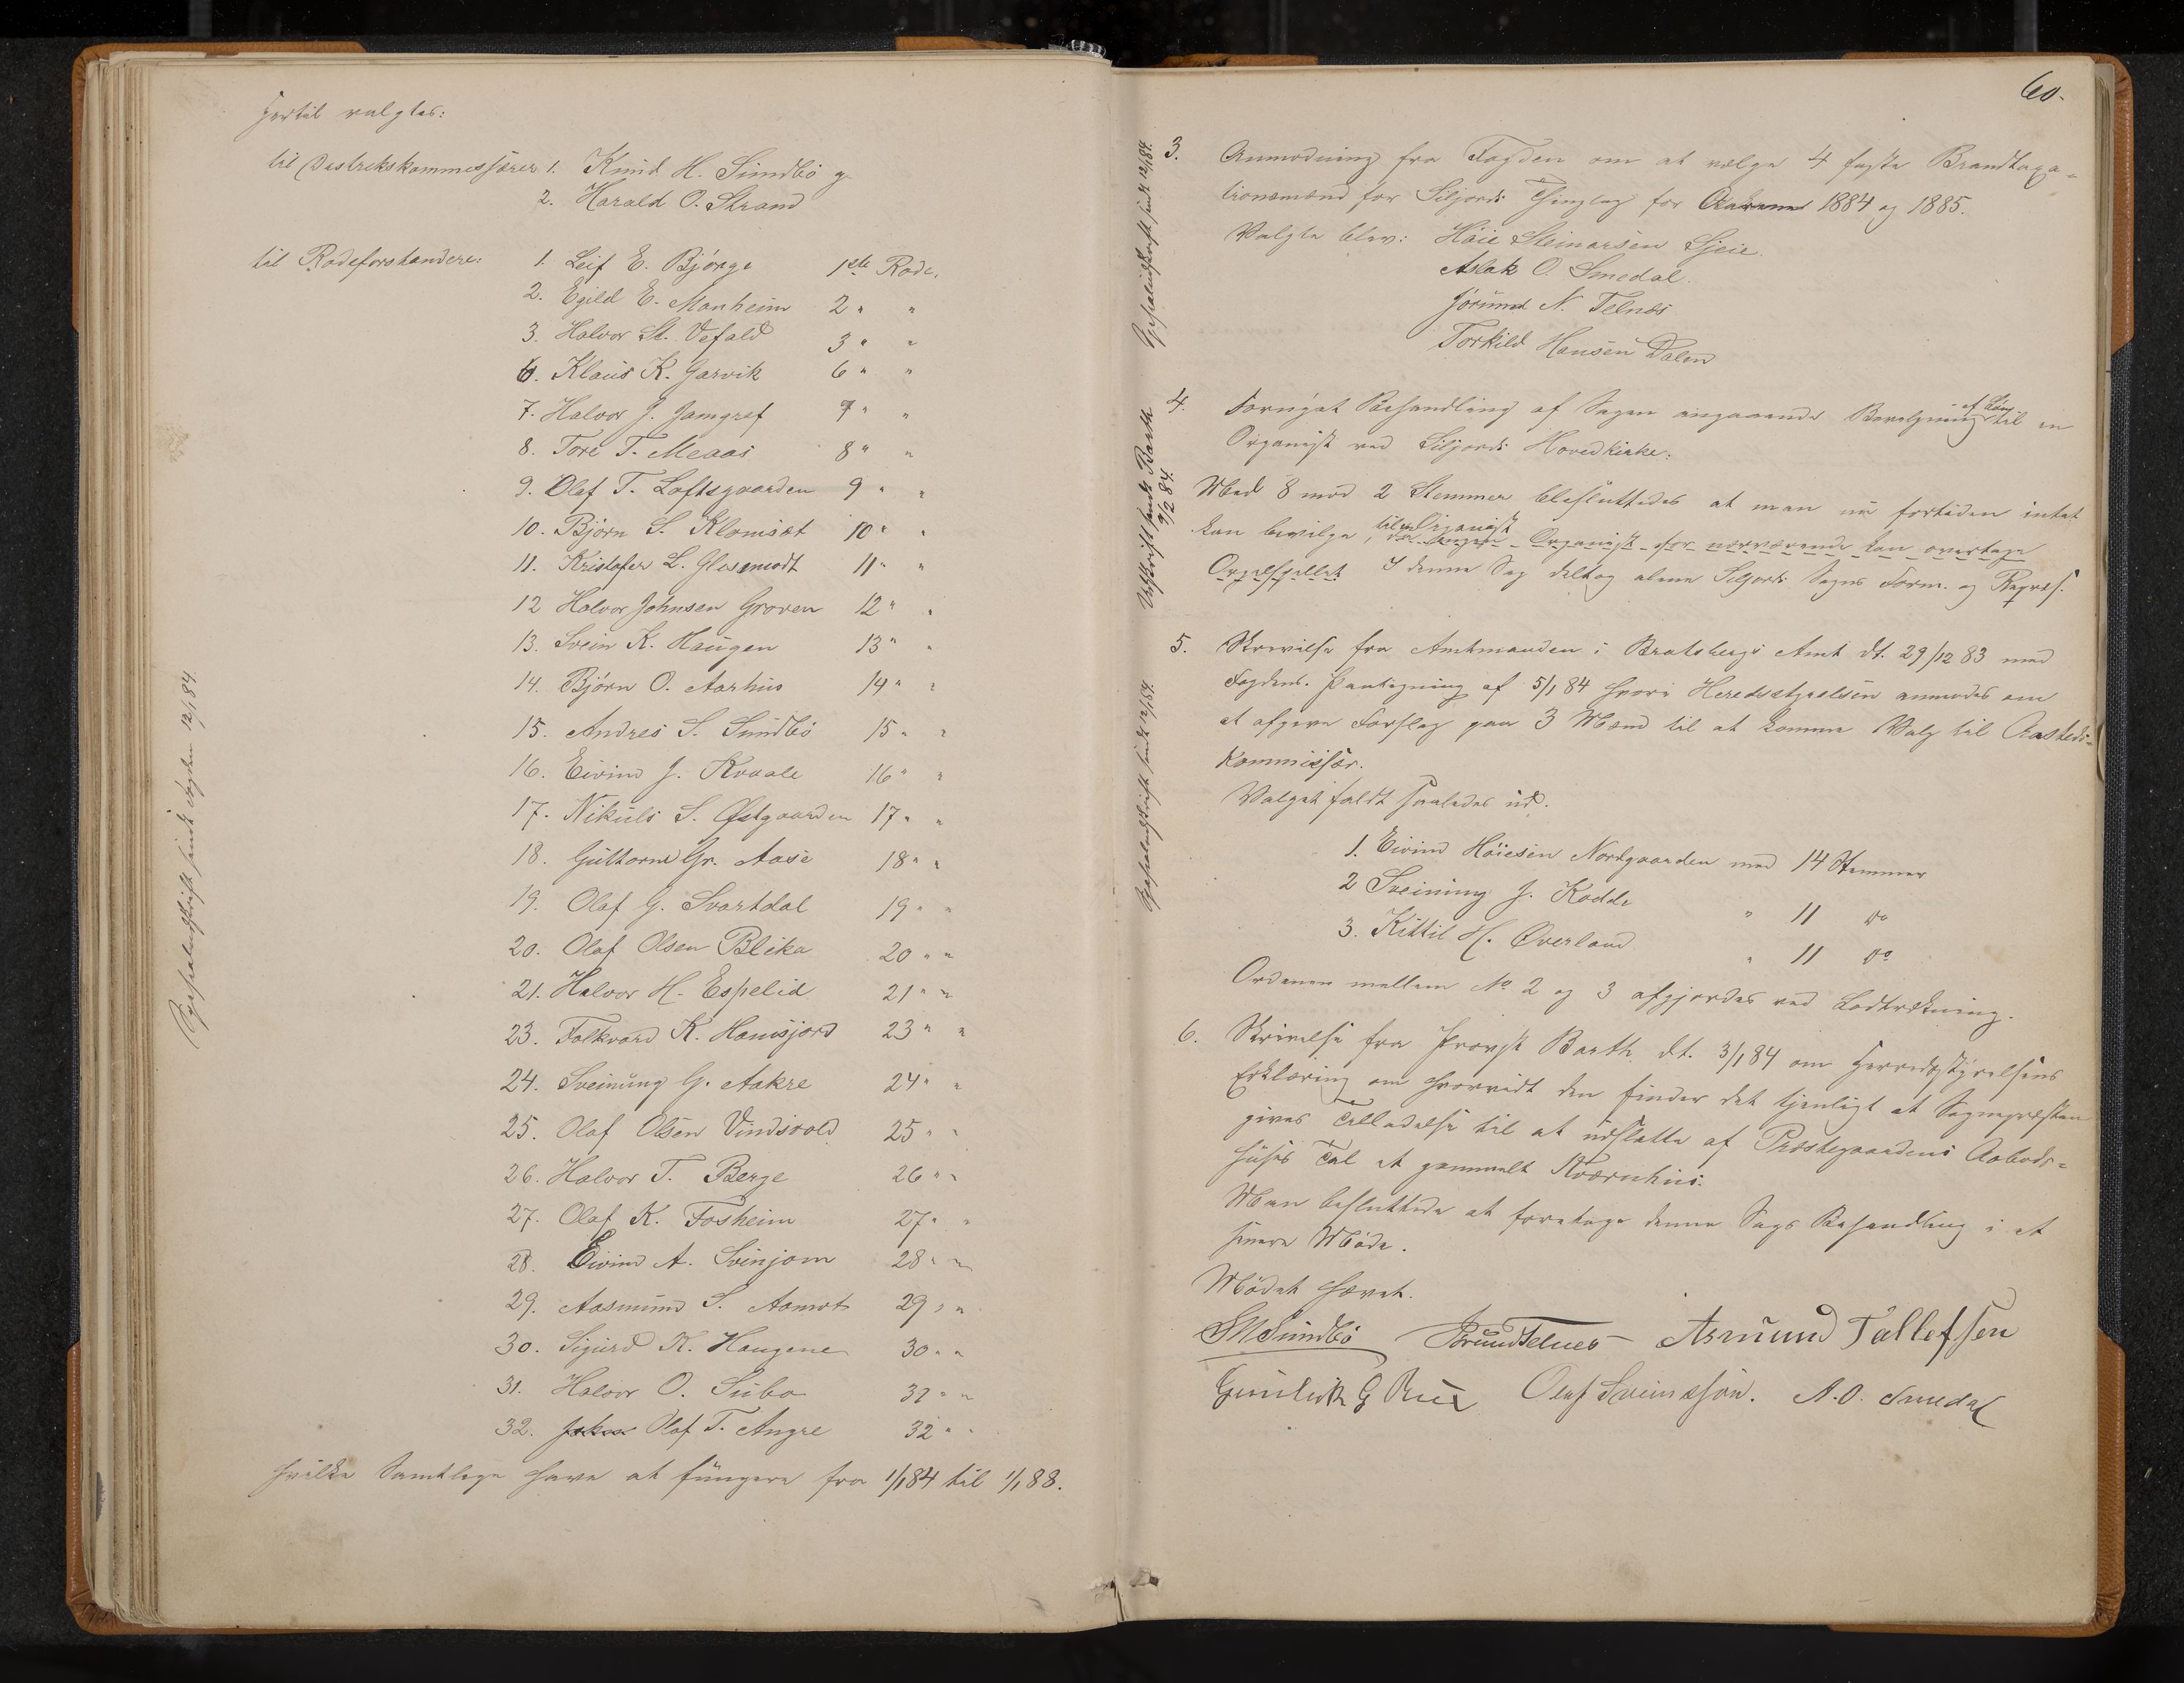 Hertil valgtes:
til Distrikskommissærer 1. Knud H. Sundbö og
2. Harald O. Strand
til Rodeforstandere: 1. Leif E. Björge 1ste Rode.
2. Egild E. Manheim 2 " "
3. Halvor St. Vefald 3 " "
6. Klaus K. Garvik 6 " "
7. Halvor J. Jamgref 7 " "
8. Tore T. Meaas 8 " "
9. Olaf T. Loftsgaarden 9 " "
10. Björn S. Klomset 10 " "
11. Kristofer L. Glosemodt 11 " "
12 Halvor Johnsen Groven 12 " "
13. Svein K. Haugen 13 " "
14. Björn O. Aarhus 14 " "
15. Andres S. Sundbö 15 " "
16. Eivind J. Kvaale 16 " "
17. Nikuls S. Østgaarden 17 " "
18. Guttorm Gr. Aase 18 " "
19. Olaf G. Svartdal 19 " "
20. Olaf Olsen Bleka 20 " "
21. Halvor H. Espelid 21 " "
23. Folkvard K. Homsjord 23 " "
24. Sveinung G. Aakre 24 " "
25. Olaf Olsen Vindsvold 25 " "
26. Halvor T. Berge 26 " "
27. Olaf K. Fosheim 27 " "
28. Eivind A. Svinjom 28 " "
29. Aasmund S. Aamot 29 " "
30. Sigurd K. Haugene 30 " "
31. Halvor O. Subo 31 " "
32. Olaf T. Angre 32 " "
hvilke Samtlige have at fungere fra 1/1 84 til 1/1 88.
Specialudskrift sendt Fogden 12/1 84
60.
3. Anmodning fra Fogden om at vælge 4 faste Brandtaxa-
tionsmænd for Siljords Thinglag for Aarene 1884 og 1885.
Valgte blev: Höie Steinarsen Gjeie.
Aslak O. Smedal.
Jörund N. Telnes
Torkild Hansen Dalen
Specialudskrift sendt 12/1 84.
4. Fornyet Behandling af Sagen angaaende Bevilgning af Løn til en
Organist ved Siljords Hovedkirke.
Med 8 mod 2 Stemmer besluttedes at man nu fortiden intet
kan bevilge til en Organist, da ingen Organist for nærværende kan overtage
Orgelspillet. I denne Sag deltog alene Siljords Sogns Form. og Repræs.
Udskrift sendt Barth 9/2 84.
5. Skrivelse fra Amtmanden i Bratsbergs Amt dt. 29/12 83 med
Fogdens Paategning af 5/1 84 hvori Heredsstyrelsen anmodes om
at afgive Forslag paa 3 Mænd til at komme Valg til Aasteds-
Kommissær.
Valget faldt saaledes ud.
1. Eivind Höiesen Nordgaarden med 14 Stemmer
2 Sveinung J. Kodde " 11 do
3. Kittil H. Øverland " 11 do
Ordenen mellem No 2 og 3 afgjordes ved Lodtrækning.
Specialudskrift sendt 12/1 84.
6. Skrivelse fra Provst Barth dt. 3/1 84 om Herredsstyrelsens
Erklæring om hvorvidt den finder det tjenligt at Sognepresten
gives Tilladelse til at udslette af Præstegaardens Aabods-
huses Tal et gammelt Kværnhus.
Man besluttede at foretage denne Sags Behandling i et
senere Möde.
Mödet hævet.
Sundbö Jørund Telnes Asmund Tallefsen
Gunleik G Olaf Sveinssøn. A. O. Smedal